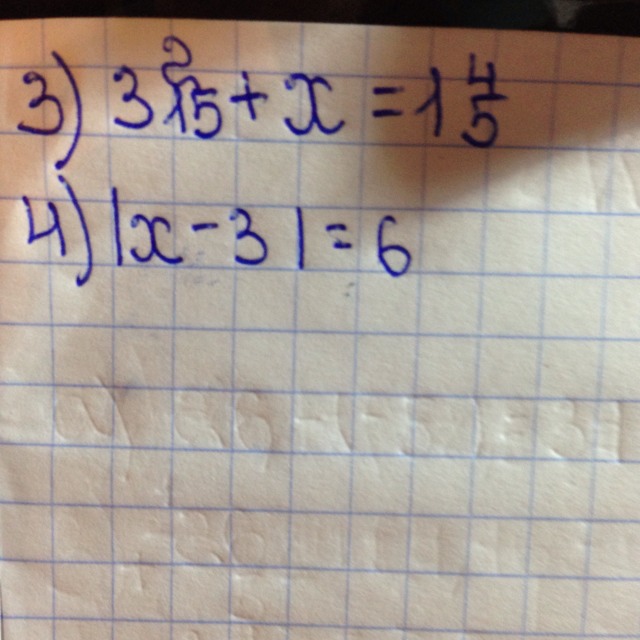 3) 3 2/15 + x = 1 4/5
4) |x - 3| = 6